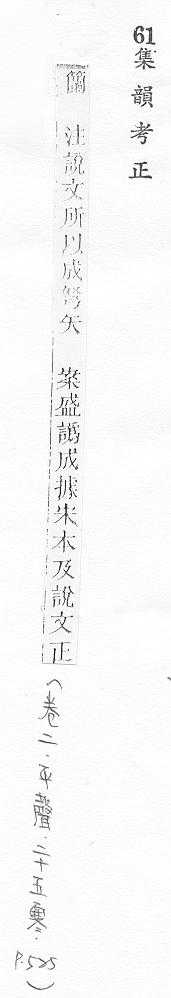 61集韻考正
籣 注說文所以成弩矢 案盛譌成據宋本及說文正
(卷二．平聲．二十五寒．P.525)